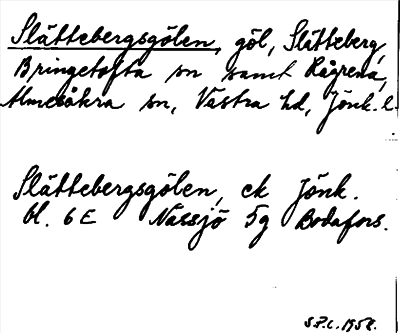 Slättebergsgölen, göl, Slätteberg,
Bringetofta sn samt Rågrena,
Almesåkra sn, Västra hd, Jönk. l.
Slättebergsgölen, ek Jönk.
bl. 6 E Nässjö 5g Bodafors.
S.P.L. 1958.